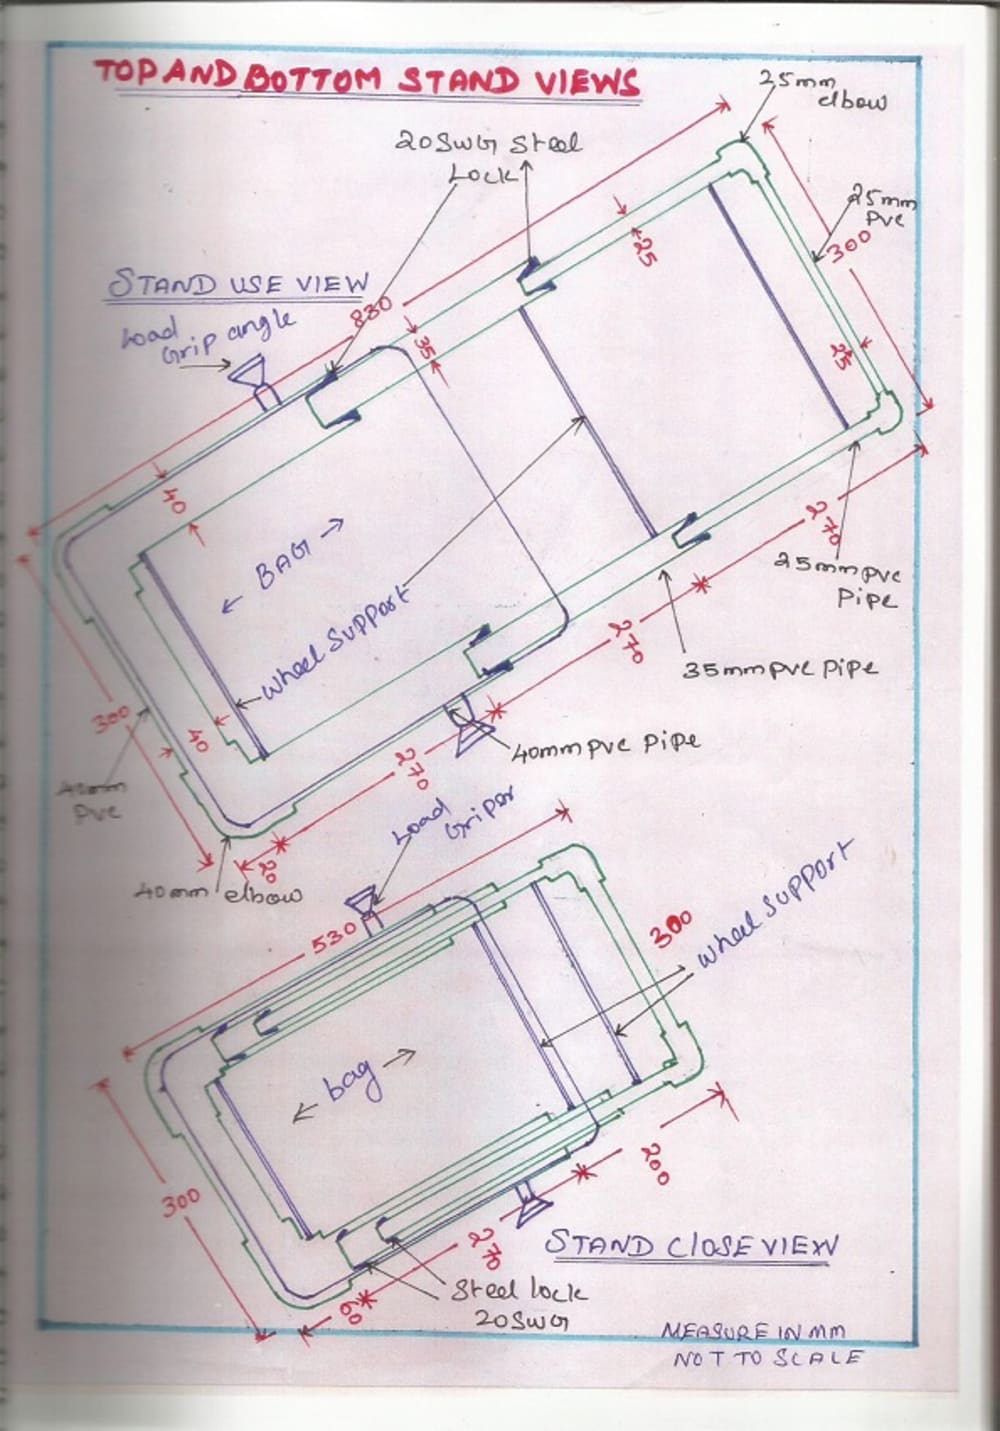 TOP AND BOTTOM STAND VIEWS
25mm
elbow
20SWG Steel
Lock
25mm
PVC
300
25
STAND USE VIEW
830
Load
Grip angle
35
25
40
BAG
270
25mm pvc
Pipe
wheel support
270
35mm pvc Pipe
300
40
40mm pvc Pipe
270
40mm
PVC
20
40mm elbow
Load
Griper
530
300
wheel support
bag
300
200
270
STAND CLOSE VIEW
60
Steel lock
20SWG
MEASURE IN MM
NOT TO SCALE